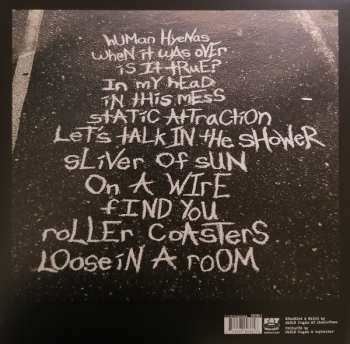 HUMAN HYENAS
WHEN it WAS OVER
is it tRUE?
IN MY HEAD
IN tHIS MESS
StAtiC AttRACtiON
LEt'S tALK IN tHE SHOWER
SLiVER OF SUN
ON A WIRE
FIND YOU
ROLLER COASTERS
LOOSE iN A ROOM
FAT